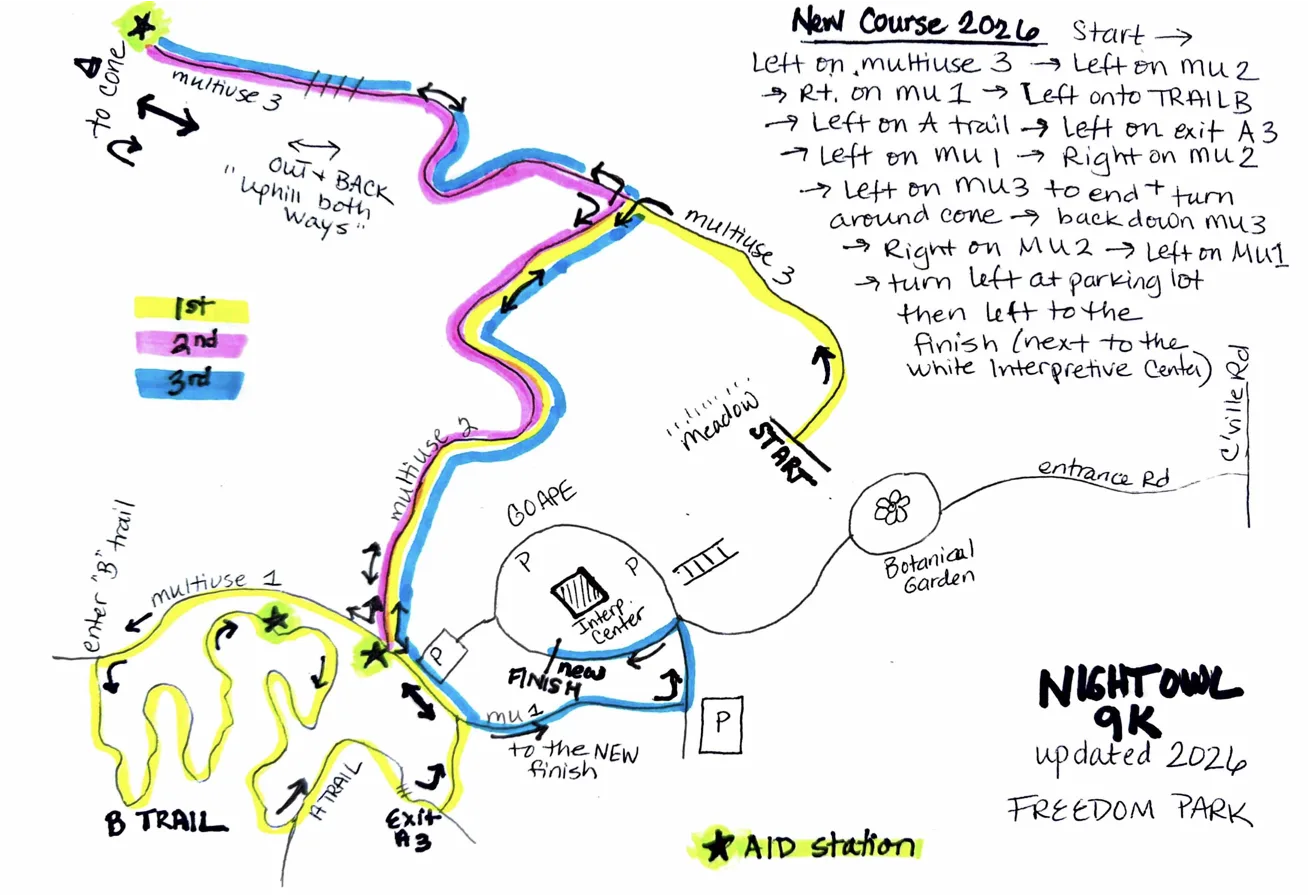 New Course 2026 Start →
Left on multiuse 3 → Left on mu 2
→ Rt. on mu 1 → Left onto TRAIL B
→ Left on A trail → Left on exit A 3
→ Left on mu 1 → Right on mu 2
→ Left on mu3 to end + turn
around cone → back down mu3
→ Right on MU2 → Left on MU1
→ turn left at parking lot
then left to the
finish (next to the
white Interpretive Center)
to cone
multiuse 3
OUT + BACK
"uphill both
ways"
multiuse 3
1st
2nd
3rd
meadow
START
C'ville Rd
entrance Rd
Botanical
Garden
multiuse 2
GO APE
P
P
Interp.
Center
enter "B" trail
multiuse 1
P
new
FINISH
mu 1
to the NEW
finish
P
B TRAIL
A TRAIL
Exit
A3
NIGHT OWL
9K
updated 2026
FREEDOM PARK
AID station